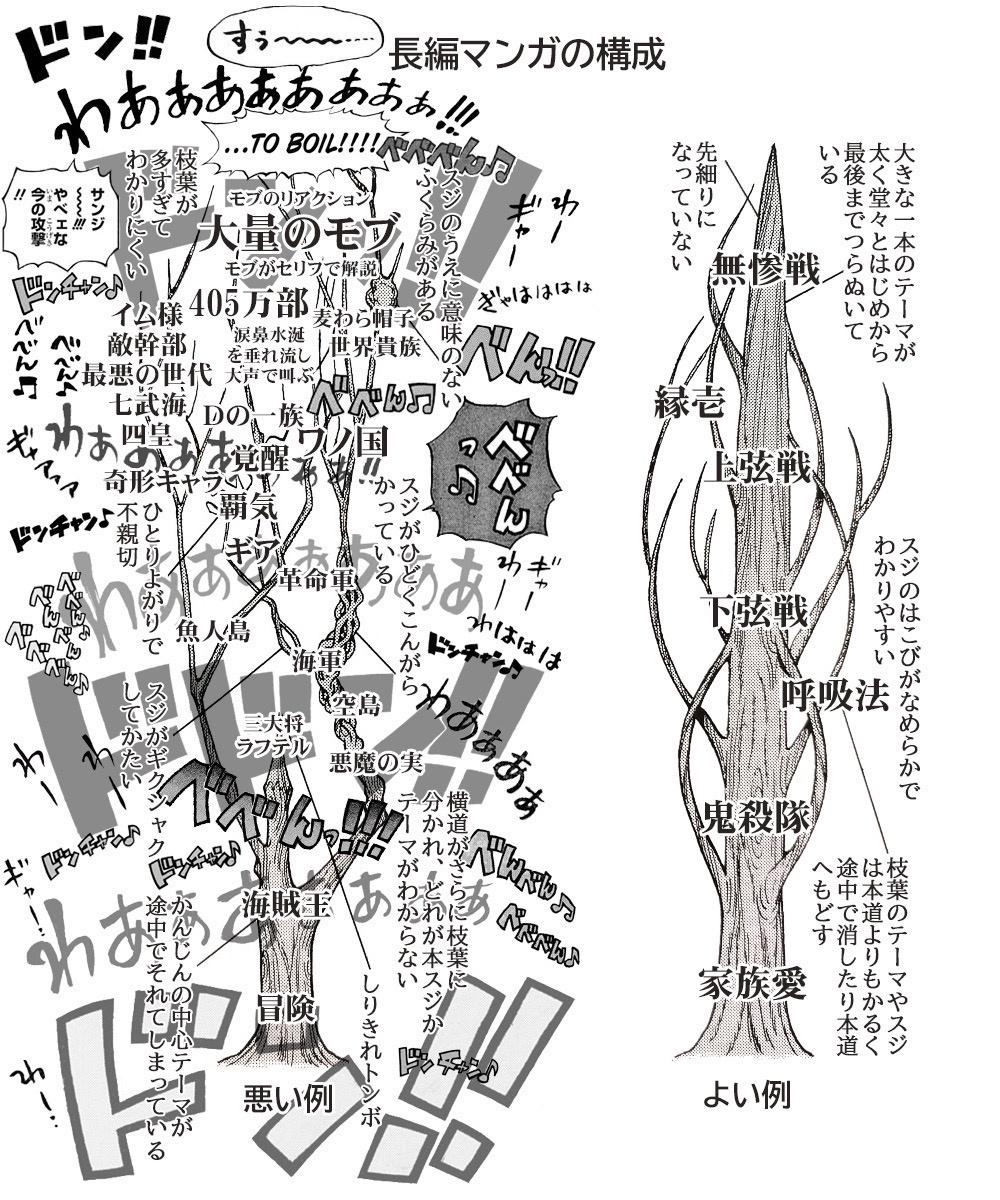 長編マンガの構成
ドン!!
すぅ〜〜〜……
わあぁぁぁぁぁぁぁぁ!!!
…TO BOIL!!!!
べべべん♫
ドン!!
サンジ
〜〜〜!!!
やべェな
今の攻撃
いま
こうげき
!!
枝葉が
多すぎて
わかりにくい
モブのリアクション
大量のモブ
モブがセリフで解説
スジのうえに意味のない
ふくらみがある
ギャー
わー
ぎゃはははは
ドンチャン♪
405万部
イム様
敵幹部
最悪の世代
七武海
四皇
奇形キャラ
涙鼻水涎
を垂れ流し
大声で叫ぶ
麦わら帽子
世界貴族
べん!!
べべん♫
Dの一族
ワノ国
覚醒
覇気
ギア
革命軍
べべんっ♫
スジがひどくこんがら
かっている
ギャアァァ
ドンチャン♪
ひとりよがりで
不親切
魚人島
海軍
空島
三大将
ラフテル
悪魔の実
わははは
ドンチャン♫
わあぁぁぁ
ドドン!!
スジがギクシャク
してかたい
べべんっ!!!
横道がさらに枝葉に
分かれ、どれが本スジか
テーマがわからない
ドンチャン♪
ドンチャン♪
べんべん♫
べべべん♫
海賊王
かんじんの中心テーマが
途中でそれてしまっている
冒険
しりきれトンボ
ドンチャン♫
ドン!!
悪い例
大きな一本のテーマが
太く堂々とはじめから
最後までつらぬいて
いる
先細りに
なっていない
無惨戦
縁壱
上弦戦
スジのはこびがなめらかで
わかりやすい
下弦戦
呼吸法
鬼殺隊
枝葉のテーマやスジ
は本道よりもかるく
途中で消したり本道
へもどす
家族愛
よい例